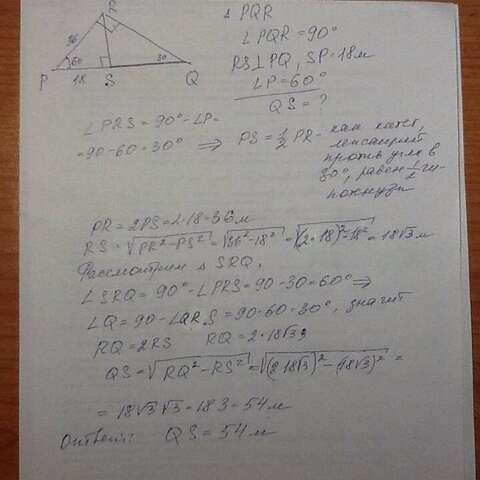 R
Δ PQR
∠PQR = 90°
36
RS⊥PQ, SP = 18м
60
30
∠P = 60°
P 18 S Q
QS = ?
∠PRS = 90° - ∠P =
= 90 - 60 = 30° ⇒ PS = 1/2 PR - как катет,
лежащий
против угла в
30°, равен 1/2 ги-
потенузы
PR = 2PS = 2·18 = 36 м
RS = √PR² - PS² = √36² - 18² = √(2·18)² - 18² = 18√3 м
Рассмотрим Δ SRQ,
∠SRQ = 90° - ∠PRS = 90 - 30 = 60° ⇒
∠Q = 90 - ∠QRS = 90 - 60 = 30°, значит
RQ = 2RS RQ = 2·18√3
QS = √RQ² - RS² = √(2·18√3)² - (18√3)² =
= 18√3·√3 = 18·3 = 54 м
Ответ: QS = 54 м